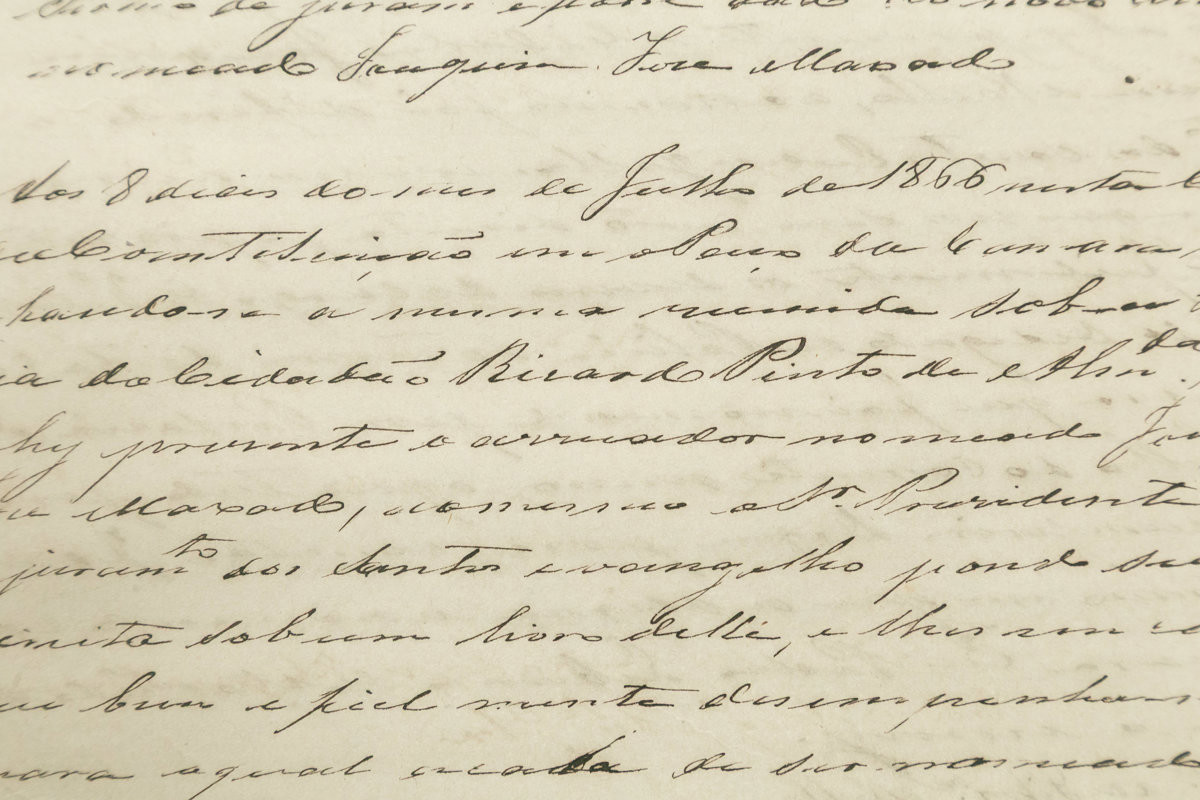 de juram e posse dado ao novo
nomeado Joaquim José Maxado
Aos 8 dieis do mes de Julho de 1866 nesta
Constituição em o Paço da Camara
hando-se a mesma reunida sob a
ia do Cidadão Ricardo Pinto de Alm.da
hy prezente o arruador nomeado
Maxado, o Sr. Prezidente
juramto dos Santos evangelho pondo sua
ireita sob um livro delle, e
ue bem e fiel mente desempenhar
para aqual acaba de ser nomeado